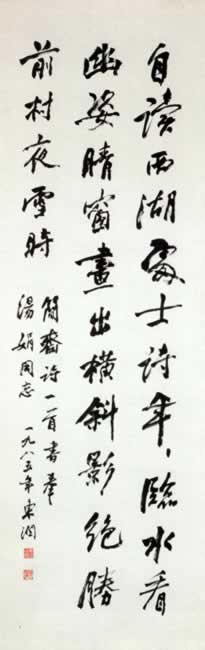 自读西湖處士诗年〻臨水看
幽姿晴窗畫出橫斜影绝勝
前村夜雪時
简齋诗一首書奉
湯娟同志 一九八五年東润